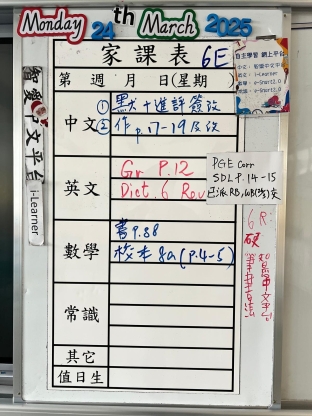 Monday 24th March 2025
家課表 6E
第 週 月 日(星期 )
自主學習 網上平台
i-Learner
智愛中文平台
i-Learner
中文
① 默六+進評簽改
② 作p.17-19及改
英文
Gr P.12
Dict. 6 Rev
PGE Corr
SDL P.14-15
數學
書p.88
校本8a(p.4-5)
6R:
硬
筆
書
法
智愛中文平台
常識
其它
值日生